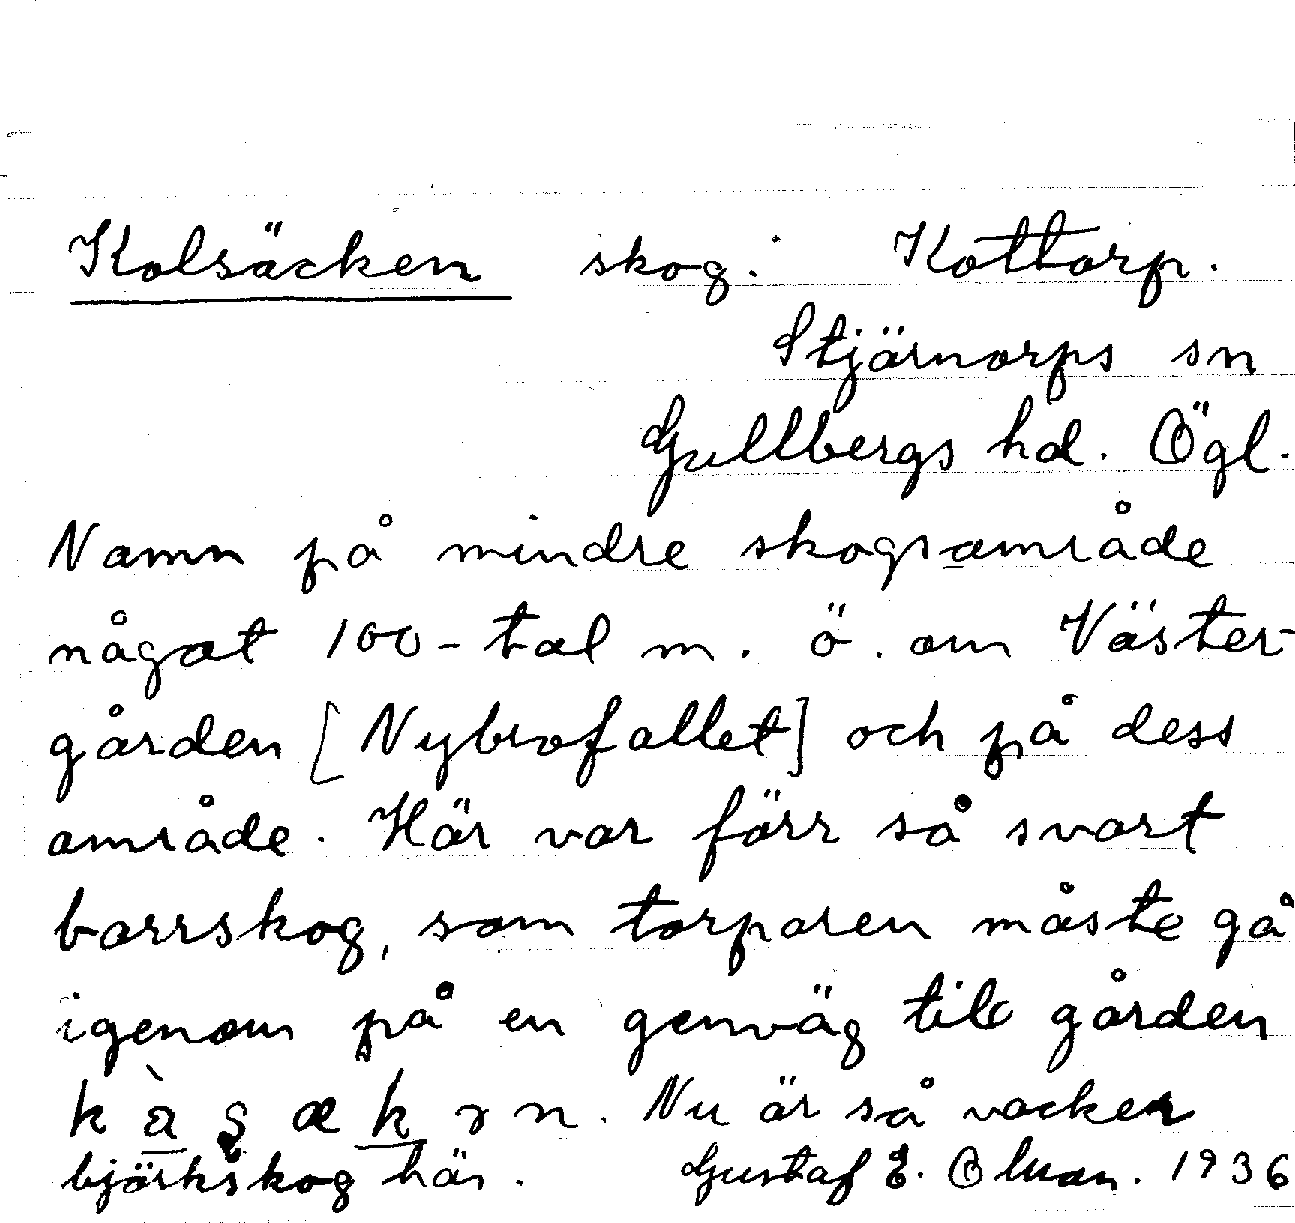 Kolsäcken skog. Kottorp.
Stjärnorps sn
Gullbergs hd. Ögl.
Namn på mindre skogsområde
något 100-tal m. ö. om Väster-
gården [Nybrofallet] och på dess
område. Här var förr så svart
barrskog, som torparen måste gå
igenom på en genväg till gården
Nu är så vacker
björkskog här. Gustaf E. Olson. 1936